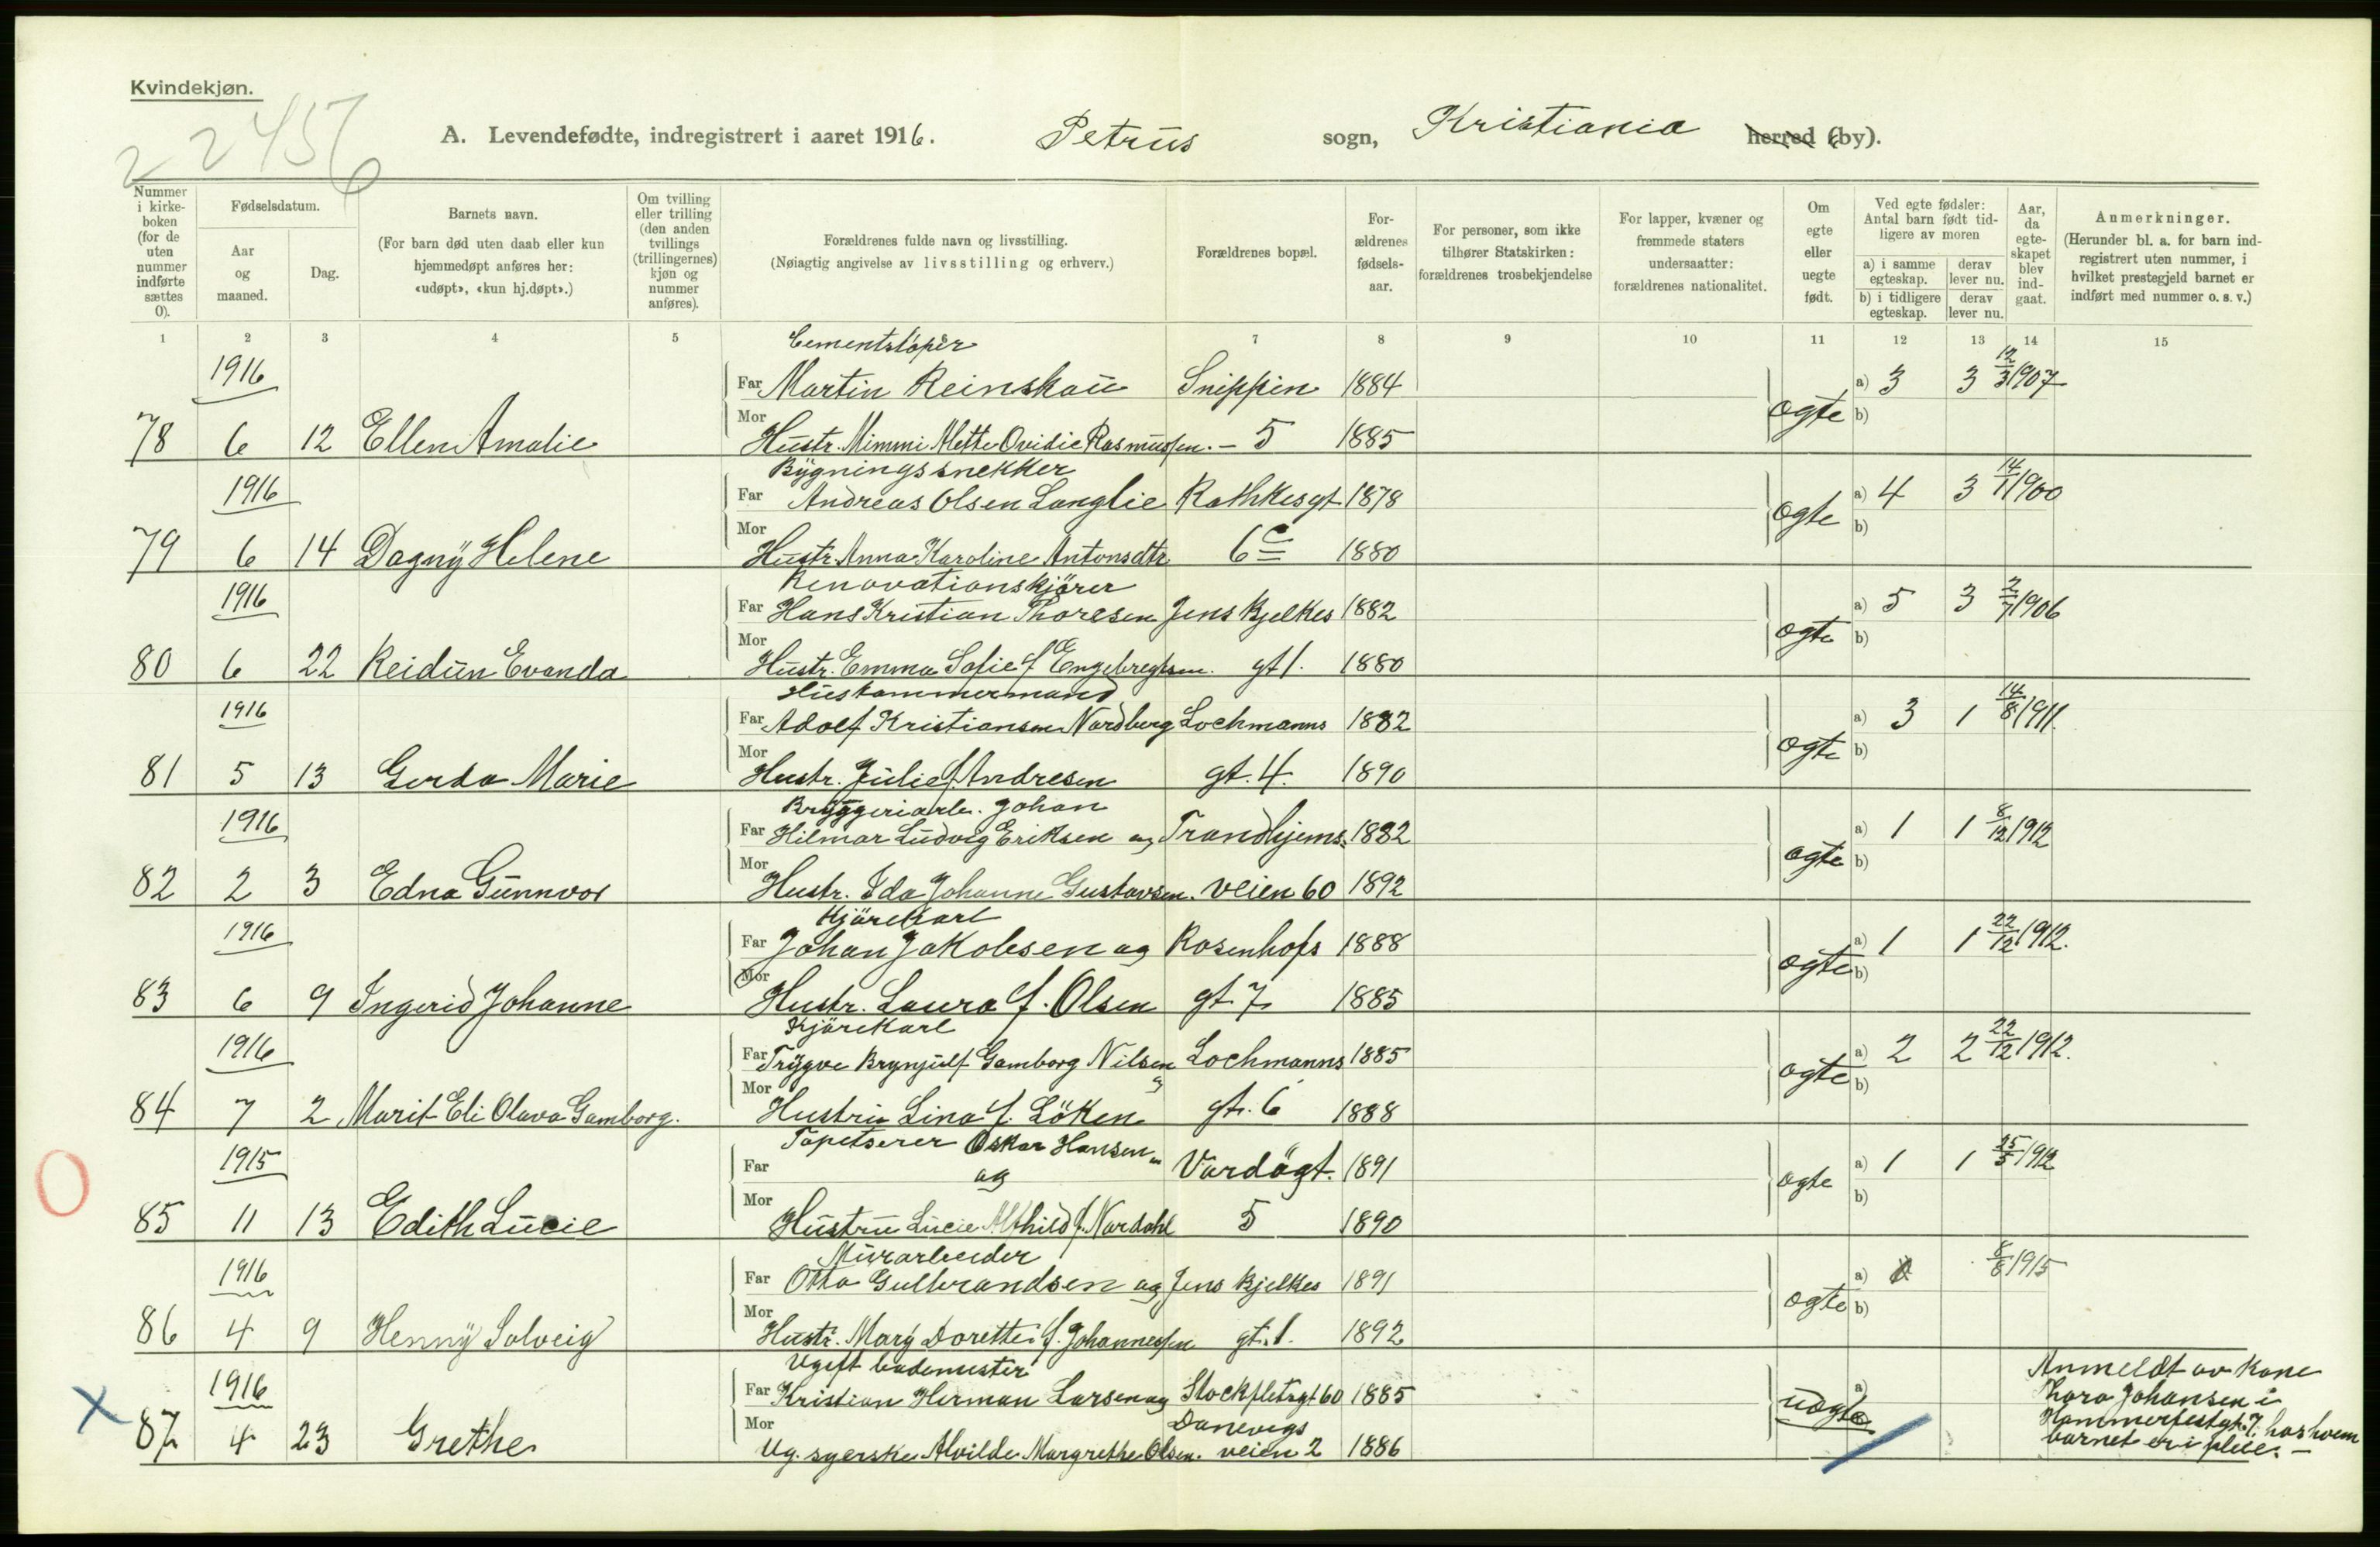 Kvindekjøn.
22456
A. Levendefødte, indregistrert i aaret 1916. Petrus sogn, Kristiania herred (by).
Nummer i kirkeboken (for de uten nummer indførte sættes 0).
Fødselsdatum.
Aar og maaned.
Dag.
Barnets navn.
(For barn død uten daab eller kun hjemmedøpt anføres her: «udøpt», «kun hj.døpt».)
Om tvilling eller trilling (den anden tvillings (trillingernes) kjøn og nummer anføres).
Forældrenes fulde navn og livsstilling.
(Nøiagtig angivelse av livsstilling og erhverv.)
Forældrenes bopæl.
Forældrenes fødselsaar.
For personer, som ikke tilhører Statskirken: forældrenes trosbekjendelse
For lapper, kvæner og fremmede staters undersaatter: forældrenes nationalitet.
Om egte eller uegte født.
Ved egte fødsler: Antal barn født tidligere av moren
a) i samme egteskap. derav lever nu.
b) i tidligere egteskap. derav lever nu.
Aar, da egteskapet blev indgaat.
Anmerkninger.
(Herunder bl. a. for barn indregistrert uten nummer, i hvilket prestegjeld barnet er indført med nummer o. s. v.)
1 2 3 4 5 7 8 9 10 11 12 13 14 15
Cementstöper
1916 Far Martin Reinskau Snippin 1884 a) 3 3 12/3 1907
78 6 12 Ellen Amalie Mor Hustr. Mimmi Mette Ovidie Rasmussen. - 5 1885 ogte b)
Bygningssnekker
1916 Far Andreas Olsen Langlie Rathkesgt 1878 a) 4 3 14/1 1900
79 6 14 Dagny Helene Mor Hustr. Anna Karoline Antonsdtr 6c 1880 ogte b)
Renovationskjörer
1916 Far Hans Kristian Thoresen Jens Bjelkes 1882 a) 5 3 2/7 1906
80 6 22 Reidun Evanda Mor Hustr. Emma Sofie f Engebregtsen. gt 1. 1880 ogte b)
Hustömmermand
1916 Far Adolf Kristiansen Nordberg Lochmanns 1882 a) 3 1 14/8 1911.
81 5 13 Gerda Marie Mor Hustr. Julie f. Andresen gt. 4. 1890 ogte b)
Bryggeriarb. Johan
1916 Far Hilmar Ludvig Eriksen og Trondhjems- 1882 a) 1 1 8/12 1912
82 2 3 Edna Gunnvor Mor Hustr. Ida Johanne Gustavsen. veien 60 1892 ogte b)
Kjörekarl
1916 Far Johan Jakobsen og Rosenhofs 1888 a) 1 1 22/12 1912.
83 6 9 Ingerid Johanne Mor Hustr. Laura f. Olsen gt. 7 1885 ogte b)
Kjörekarl
1916 Far Trygve Brynjulf Gamborg Nilsen og Lochmanns 1885 a) 2 2 22/12 1912.
84 7 2 Marit Eli Olava Gamborg. Mor Hustru Lina f. Löken gt. 6 1888 ogte b)
Tapetserer Oskar Hansen
1915 Far og Vardögt. 1891 a) 1 1 25/5 1912
85 11 13 Edith Lucie Mor Hustru Lucie Alfhild f. Nordahl 5 1890 ogte b)
Murarbeider
1916 Far Otto Gulbrandsen og Jens Bjelkes 1891 a) 8/8 1915
86 4 9 Henny Solveig Mor Hustr. Mary Dorette f. Johannessen gt. 1. 1892 ogte b)
Ugift bademester
1916 Far Kristian Herman Larsen og Stockfletsgt 60 1885 a)
87 4 23 Grethe Mor Ug. syerske Alvilde Margrethe Olsen. Danevigs veien 2 1886 uogte
Anmeldt av Kone
Thora Johansen i
Hammerfestgt. 7, hos hvem
barnet er i pleie. -